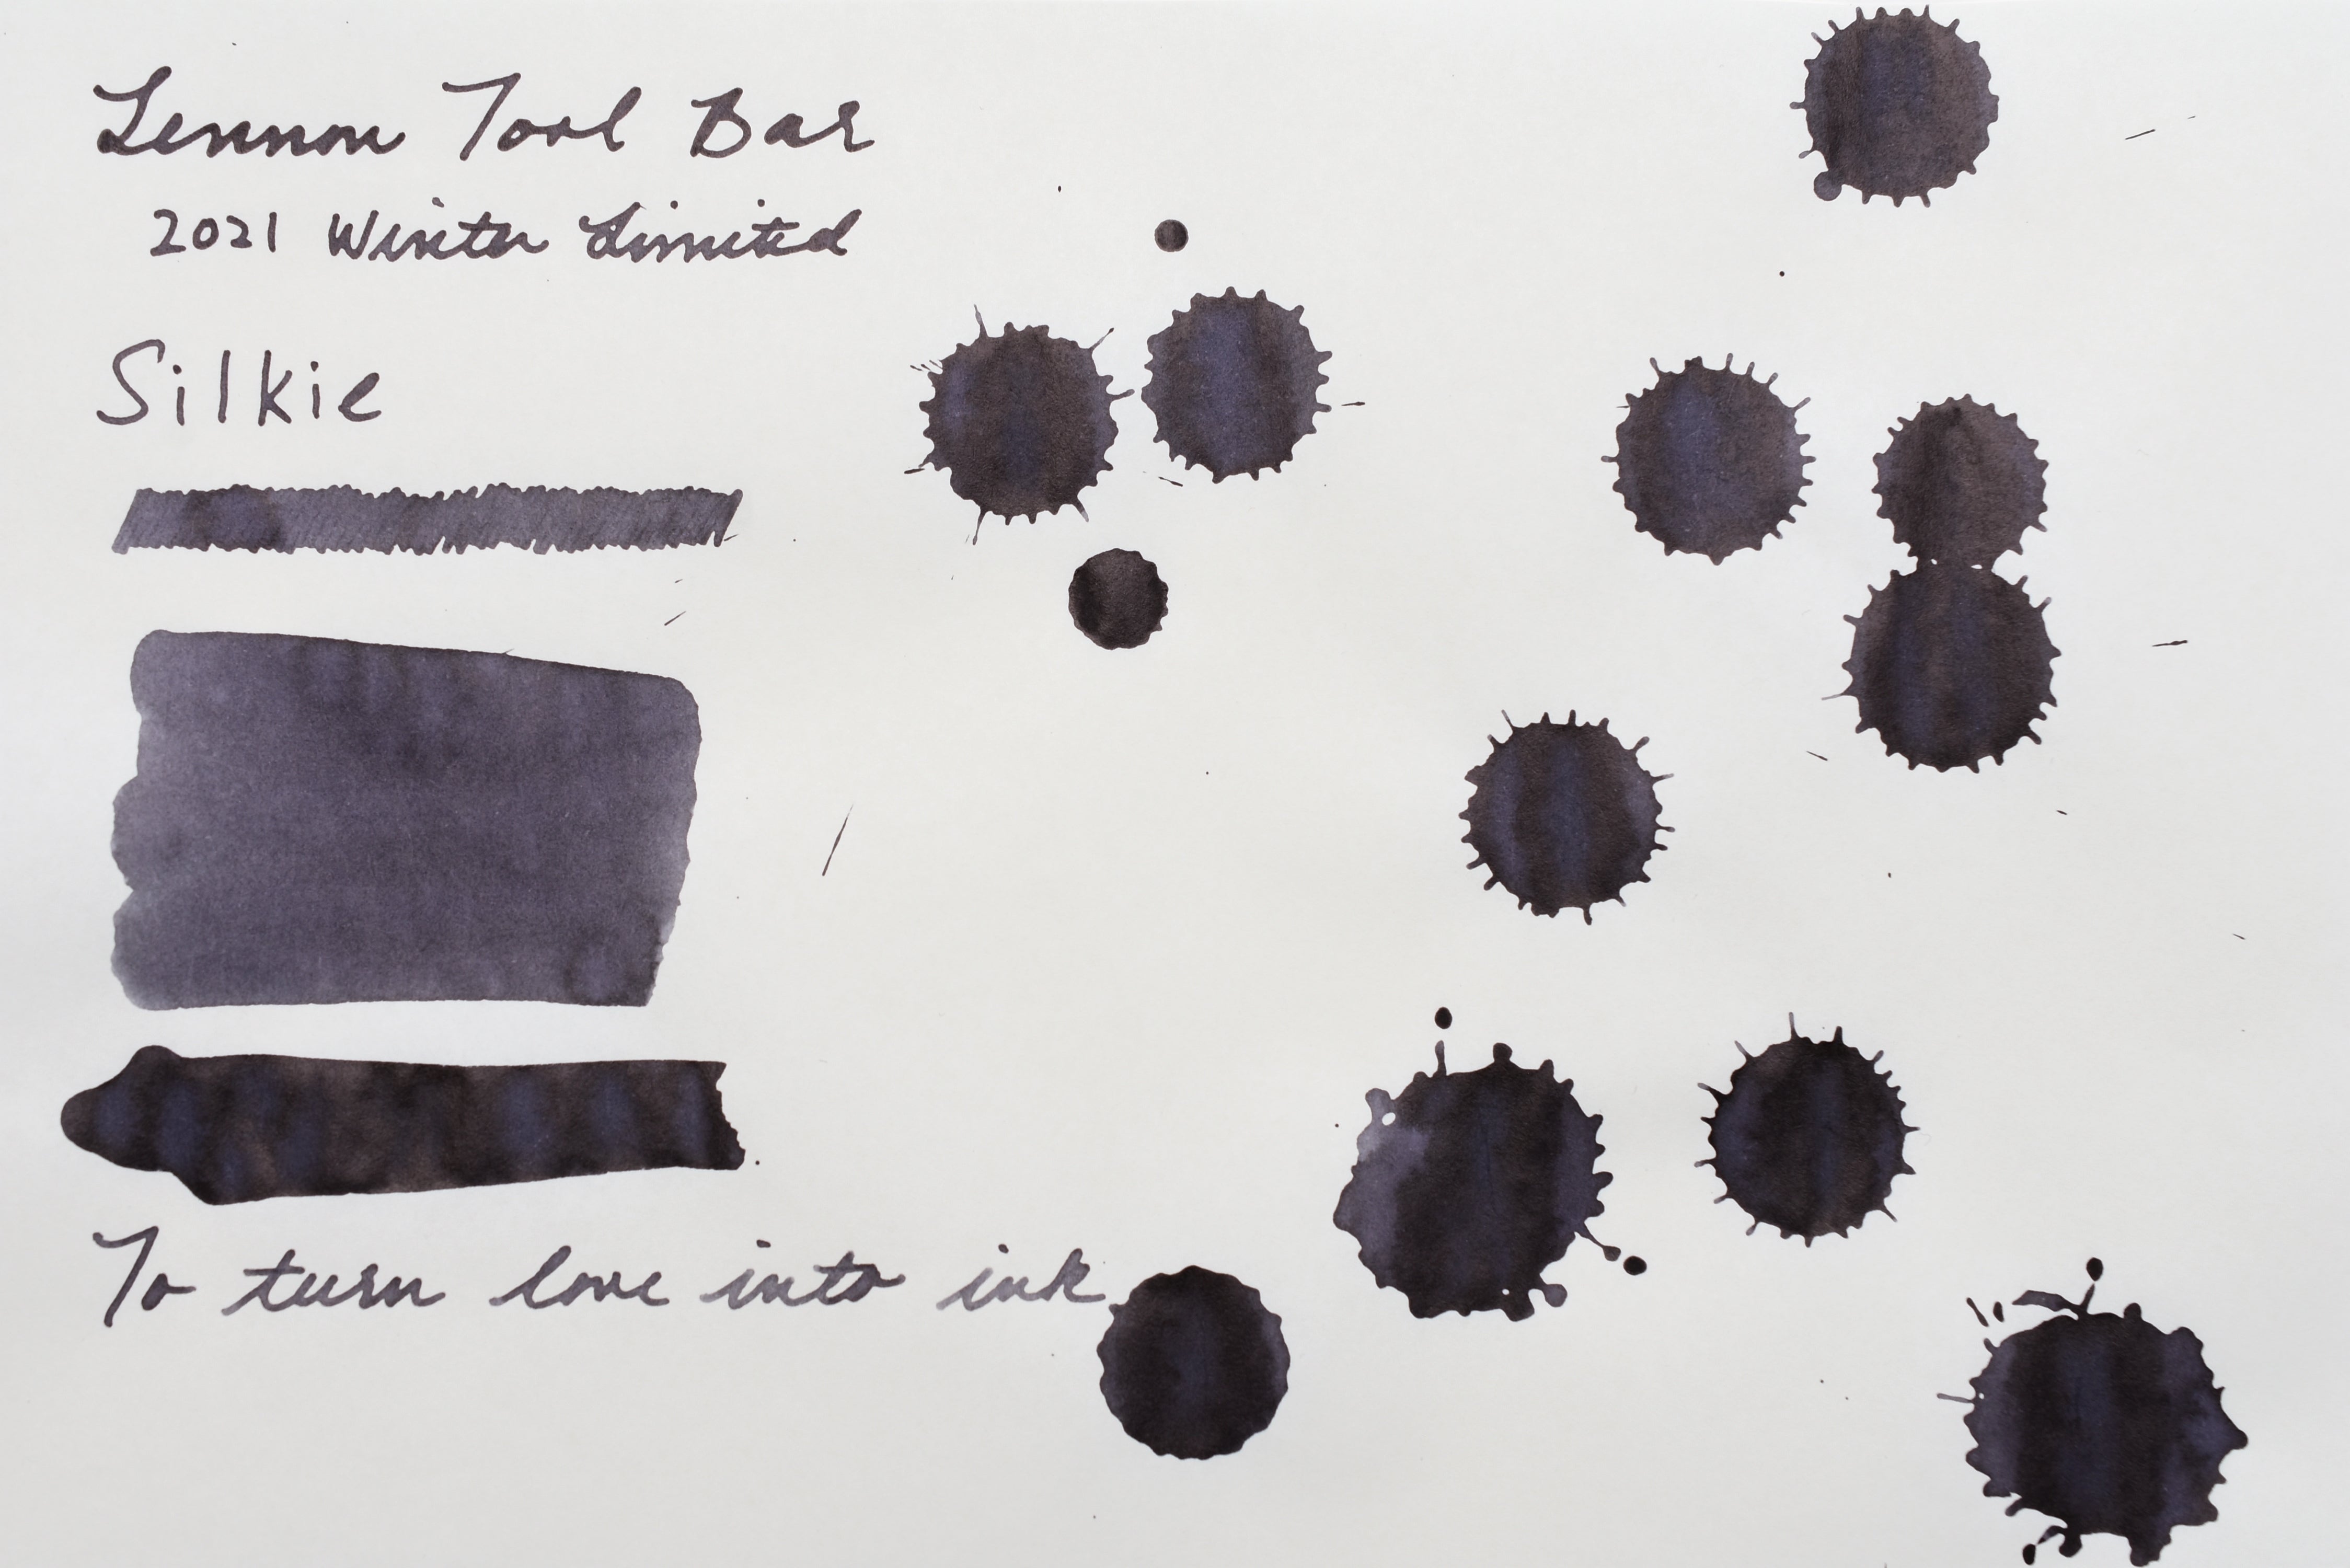 Lennon Tool Bar
2021 Winter Limited
Silkie
To turn love into ink